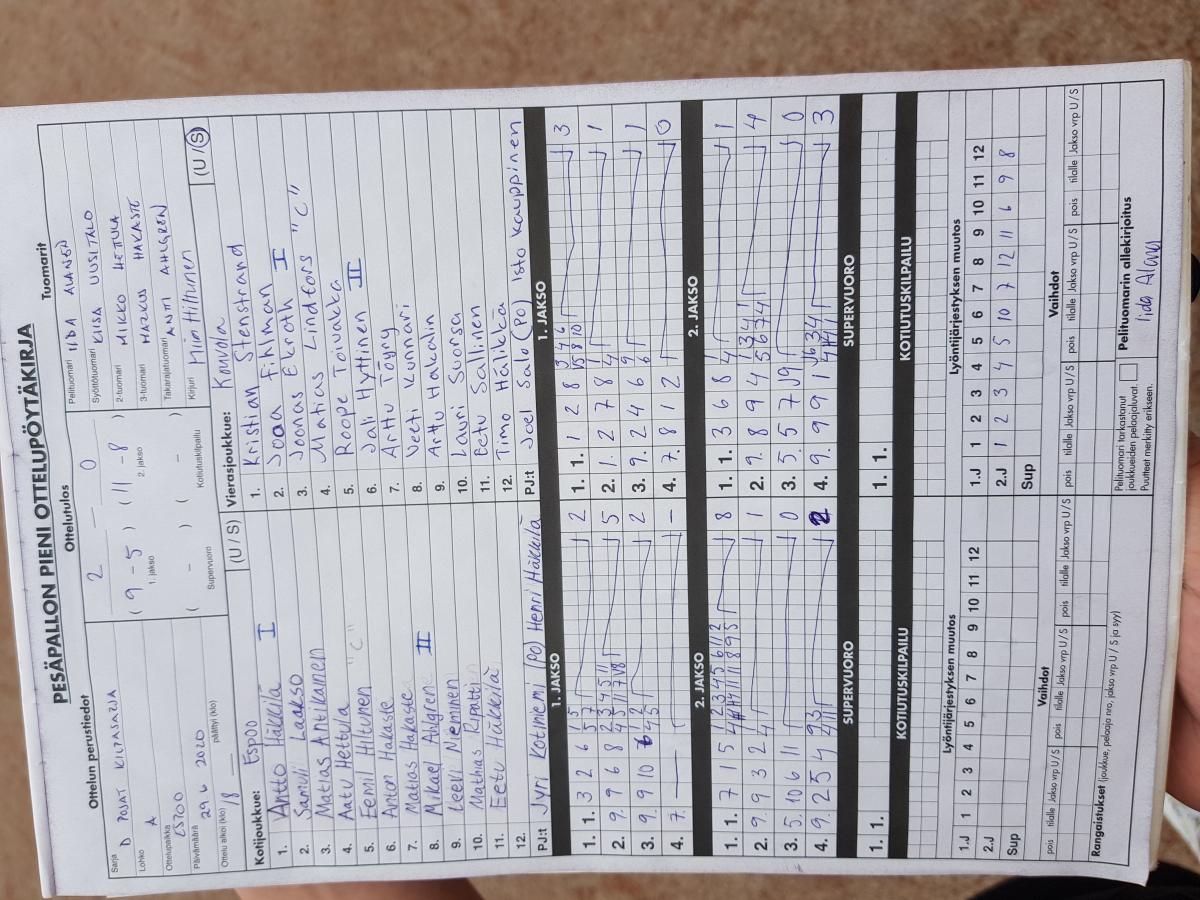 PESÄPALLON PIENI OTTELUPÖYTÄKIRJA
Ottelun perustiedot
Ottelutulos
Tuomarit
Sarja D POJAT KILPASARJA
Lohko A
Ottelupaikka ESPOO
Päivämäärä 29 6 2020
Ottelu alkoi (klo) 18
päättyi (klo)
2 — 0
( 9 - 5 ) ( 11 - 8 )
1. jakso 2. jakso
( - ) ( - )
Supervuoro Kotiutuskilpailu
Pelituomari IIDA ALANEN
Syöttötuomari KIISA UUSITALO
2-tuomari MIKKO HETTULA
3-tuomari MARKUS HAKASTE
Takarajatuomari ANTTI AHLGREN
Kirjuri Kim Hiltunen
Kotijoukkue: Espoo (U / S)
1. Antto Häkkilä I
2. Samuli Laakso
3. Matias Antikainen
4. Aatu Hettula "C"
5. Eemil Hiltunen
6. Anton Hakaste
7. Matias Hakaste
8. Mikael Ahlgren II
9. Leevi Nieminen
10. Mathias Ripatti
11. Eetu Häkkilä
12.
PJ:t Jyri Kotiniemi (PO) Henri Häkkilä
Vierasjoukkue: Kouvola (U / S)
1. Kristian Stenstrand
2. Joaa Fihlman I
3. Joonas Ekroth
4. Matias Lindfors "C"
5. Roope Toivakka
6. Jali Hyttinen II
7. Arttu Töyry
8. Veeti Kunnari
9. Arttu Hakalin
10. Lauri Suonsa
11. Eetu Sallinen
12. Timo Hälikkä
PJ:t Joel Salo (PO) Isto Kauppinen
1. JAKSO
1. 1. 3 2 6 2
2. 9. 9 6 8 5
3. 9. 9 10 6 2
4. 7. — —
1. JAKSO
1. 1. 1 2 8 3
2. 1. 2 7 8 1
3. 9. 2 4 6 1
4. 7. 8 1 2 0
2. JAKSO
1. 1. 7 1 5 8
2. 9. 9 3 2 1
3. 5. 10 6 11 0
4. 9. 2 5 4 2
2. JAKSO
1. 1. 3 6 8 1
2. 9. 8 9 4 4
3. 5. 5 7 9 0
4. 9. 9 9 1 3
SUPERVUORO
1. 1.
SUPERVUORO
1. 1.
KOTIUTUSKILPAILU
KOTIUTUSKILPAILU
Lyöntijärjestyksen muutos
1.J 1 2 3 4 5 6 7 8 9 10 11 12
2.J
Sup
Lyöntijärjestyksen muutos
1.J 1 2 3 4 5 6 7 8 9 10 11 12
2.J 1 2 3 4 5 10 7 12 11 6 9 8
Sup
Vaihdot
pois tilalle Jakso vrp U / S pois tilalle Jakso vrp U / S
Vaihdot
pois tilalle Jakso vrp U / S pois tilalle Jakso vrp U / S pois tilalle Jakso vrp U / S
Rangaistukset (joukkue, pelaaja nro, jakso vrp U / S ja syy)
Pelituomari tarkastanut
joukkueiden pelaajaluvat.
Puutteet merkitty erikseen.
Pelituomarin allekirjoitus
Iida Alanen